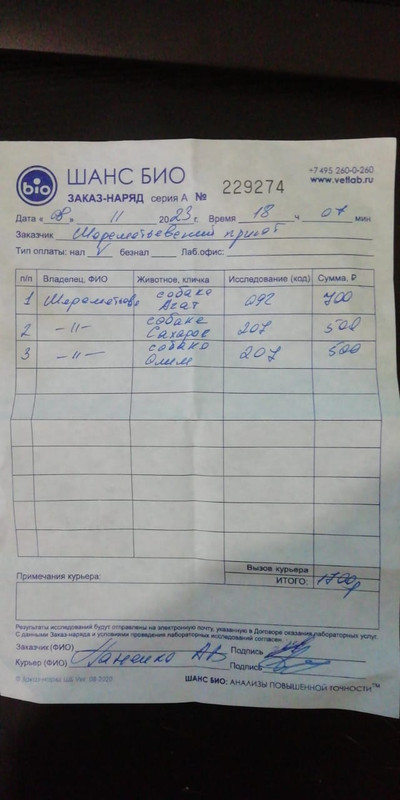 bio
ШАНС БИО
ЗАКАЗ-НАРЯД серия А № 229274
+7 495 260-0-260
www.vetlab.ru
Дата «08» 11 2023 г. Время 18 ч 07 мин
Заказчик Шереметьевский приют
Тип оплаты: нал V безнал Лаб.офис:
п/п Владелец, ФИО Животное, кличка Исследование (код) Сумма, ₽
1 собака Агат 092 700
2 -"- собака 207 500
3 -"- собака 207 500
Вызов курьера
ИТОГО 1700р
Примечания курьера:
Результаты исследований будут отправлены на электронную почту, указанную в Договоре оказания лабораторных услуг.
С данными Заказ-наряда и условиями проведения лабораторных исследований согласен.
Заказчик (ФИО) Подпись
Курьер (ФИО) Подпись
ШАНС БИО: АНАЛИЗЫ ПОВЫШЕННОЙ ТОЧНОСТИ™